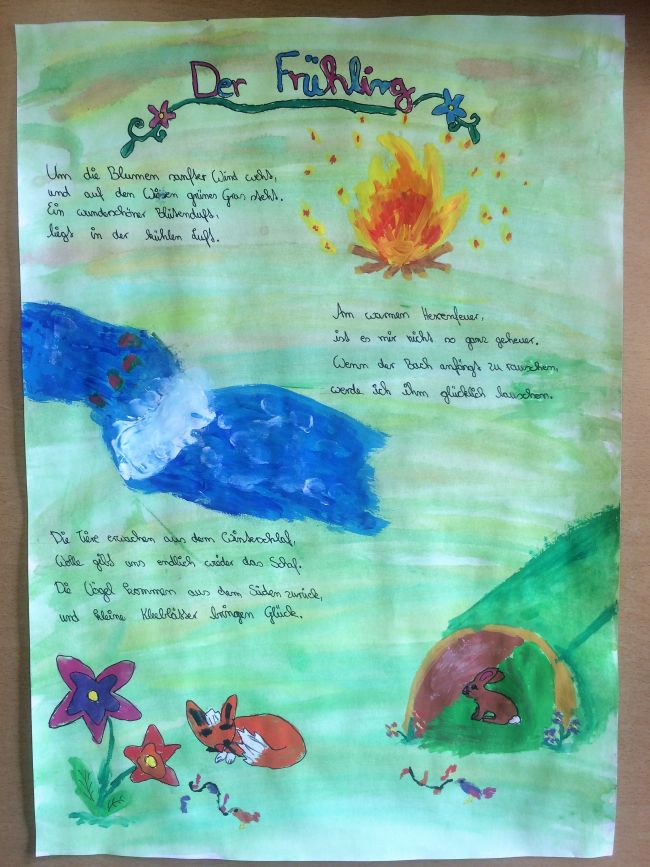 Der Frühling
Um die Blumen sanfter Wind weht,
und auf den Wiesen grünes Gras steht.
Ein wunderschöner Blütenduft,
liegt in der kühlen Luft.
Am warmen Hexenfeuer,
ist es mir nicht so ganz geheuer.
Wenn der Bach anfängt zu rauschen,
werde ich ihm glücklich lauschen.
Die Tiere erwachen aus dem Winterschlaf,
Wolle gibt uns endlich wieder das Schaf.
Die Vögel kommen aus dem Süden zurück,
und kleine Kleeblätter bringen Glück.